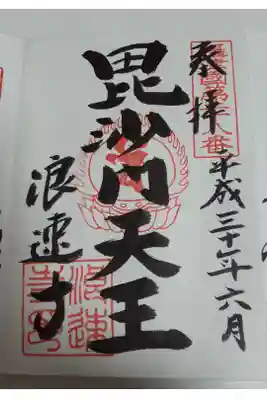 奉拝
國第
八番
平成三十年六月
毘沙門天王
浪速寺
浪速
寺印